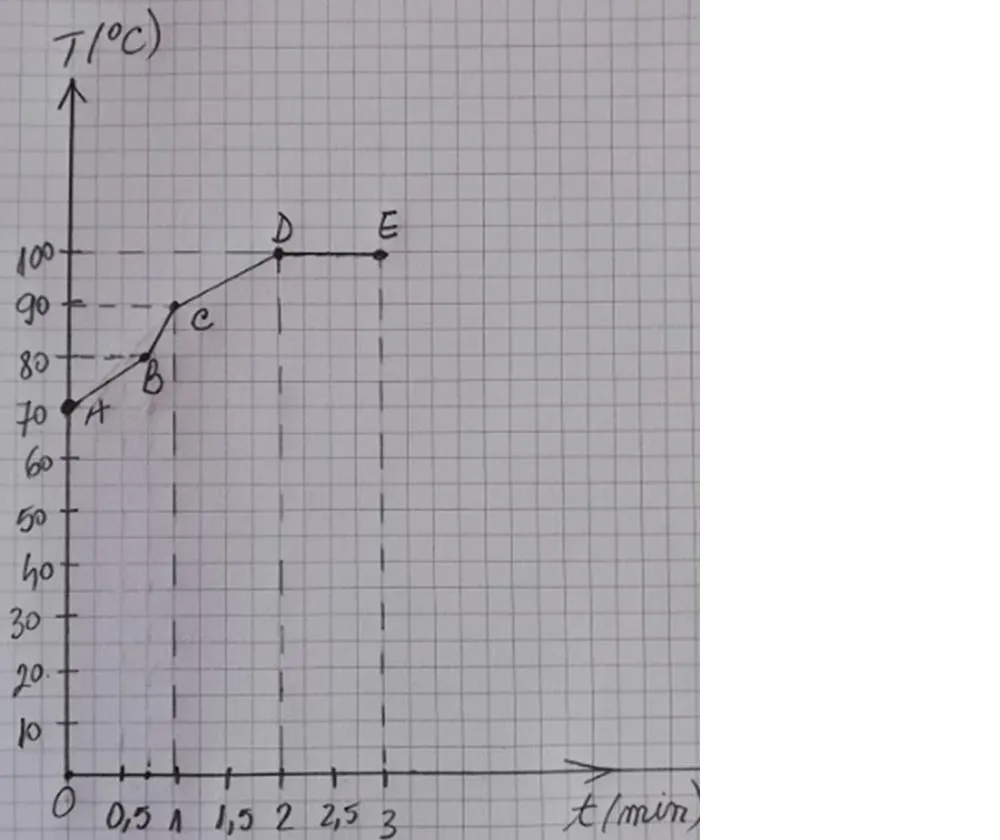 T(°C)
D E
100
90
C
80
B
70 A
60
50
40
30
20
10
0 0,5 1 1,5 2 2,5 3 t(min)